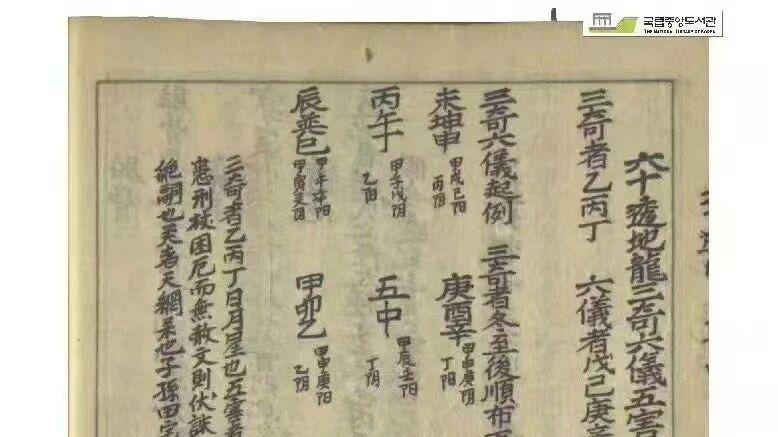 六十透地龍三奇六儀五害
三奇者乙丙丁 六儀者戊己庚辛
三奇六儀起例 三奇者冬至後順布
未坤申 甲戌己阳 丙阴 庚酉辛 甲申庚阴 丁阳
丙午丁 甲子戊阴 乙阳 五中 甲辰壬阳 丁阴
辰巽巳 甲午辛阳 甲寅癸阴 甲卯乙 甲申庚阳 乙阴
三奇者乙丙丁日月星也五害者
患刑救困厄而無敵文則伏誅
絶嗣也癸為天網
也子孫田宅
국립중앙도서관
THE NATIONAL LIBRARY OF KOREA